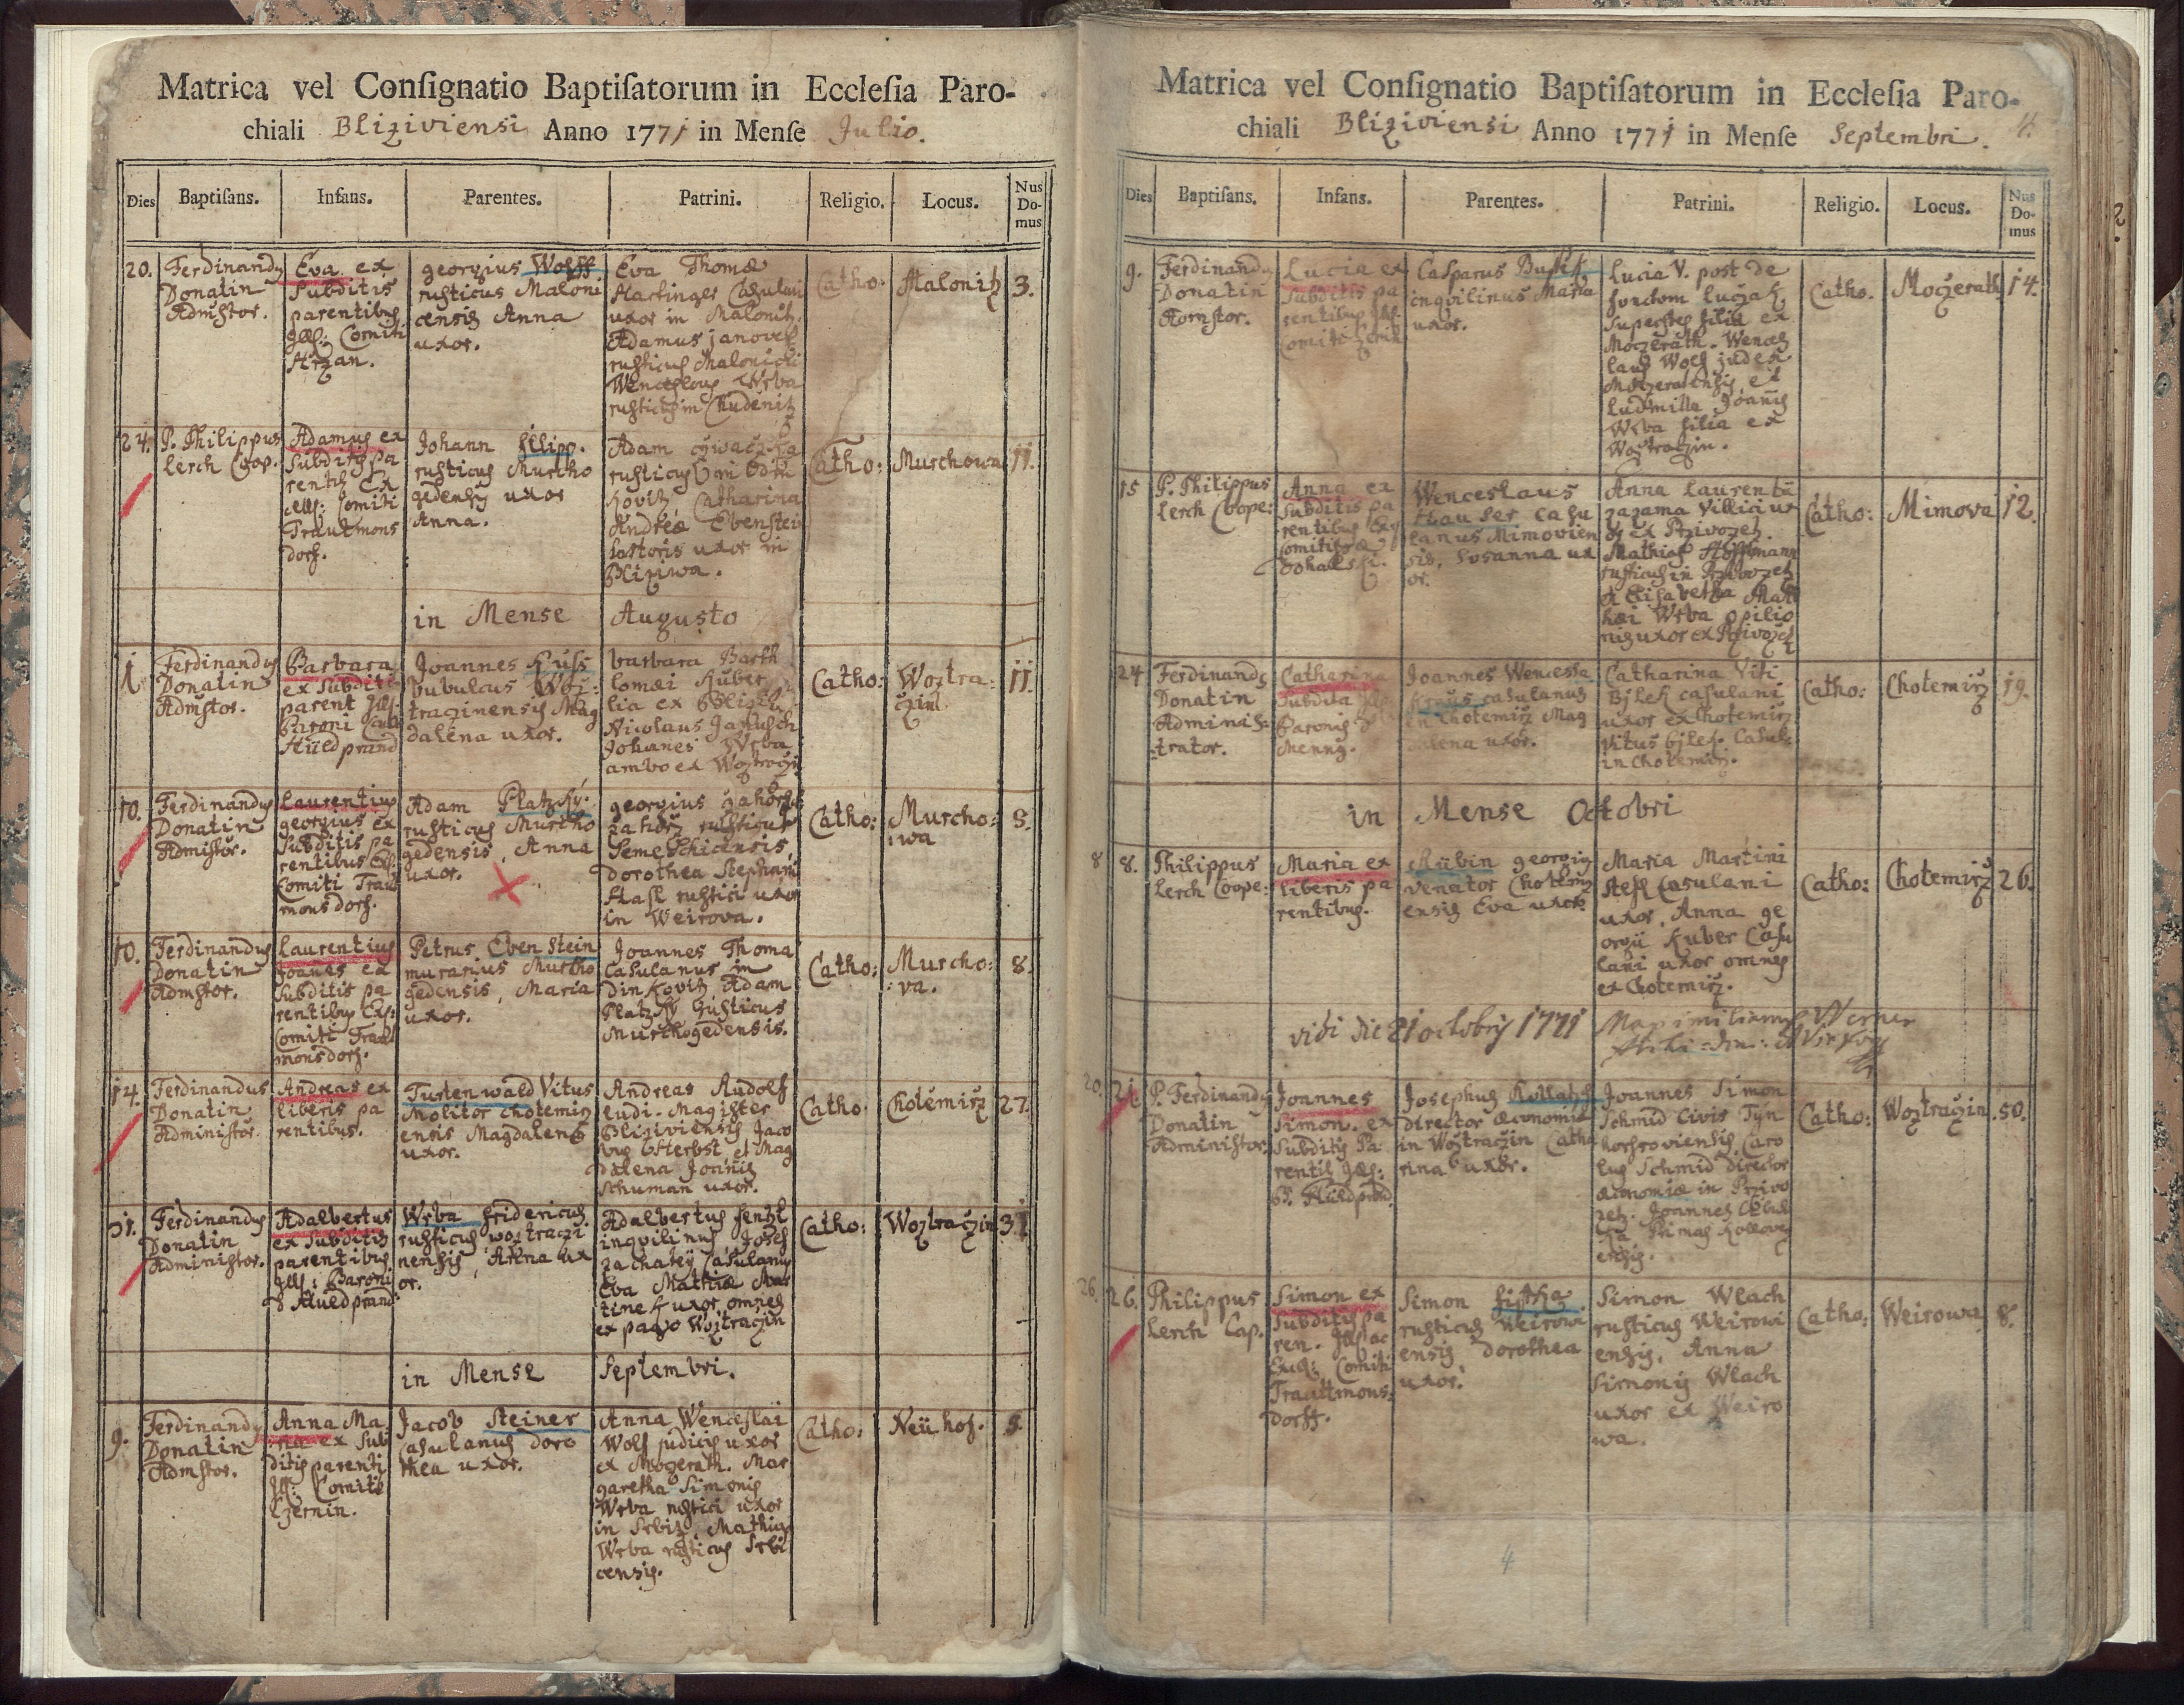 Matrica vel Conſignatio Baptiſatorum in Eccleſia Paro-
chiali Bliziviensi Anno 1771 in Menſe Julio.
Dies Baptiſans. Infans. Parentes. Patrini. Religio. Locus. Nus Do-mus
20.
Ferdinandus
Donatin
Admstor.
Eva ex
subditis
parentibus
Comiti
georgius Wolff
rusticus Maloni
censis Anna
uxor.
Eva Thomæ
uxor in Malonitz.
Adamus janovsk
rusticus
Wenceslaus Wrba
rusticus in Chudenitz
Catho:
Malonitz
3.
24.
P. Philippus
Lerch Coop.
Adamus ex
subditis pa
rentib. Ex
Comiti
Trautmons
dorf.
Johann filipp.
rusticus Murcho
gedensis uxor
Anna.
Adam
rusticus
Catharina
Andreæ Ebenstein
uxor in
Bliziwa.
Catho:
Murchowa
11.
in Mense Augusto
1.
Ferdinandus
Donatin
Admstor.
Barbara
ex subditis
parent
Baroni
Joannes Kuss
bubulcus Woz:
traczinensis Mag
dalena uxor.
barbara Barth
lomæi Huber
lia ex
Nicolaus
Johanes Wrba
ambo ex
Catho:
Woztra:
czin
11.
10.
Ferdinandus
Donatin
Admistor.
Laurentius
georgius ex
subditis pa
rentibus
Comiti Traut
monsdorf.
Adam Platzky.
rusticus Murcho
gedensis, Anna
uxor.
georgius
rusticus
dorothea Stephani
rustici uxor
in Weirova.
Catho:
Murcho:
:wa
5.
10.
Ferdinandus
Donatin
Admstor.
Laurentius
Joanes ex
subditis pa
rentibus Ex:
Comiti Traut
monsdorf.
Petrus Eben Stein
murarius Murcho
gedensis, Maria
uxor.
Joannes Thoma
Casulanus in
dinkovitz Adam
Platzky Rusticus
Murchogedensis.
Catho:
Murcho:
:va.
8.
14.
Ferdinandus
Donatin
Administor.
Andreas ex
liberis pa
rentibus.
Turtenwald Vitus
Molitor Chotemirz
ensis Magdalena
uxor.
Andreas Rudolf
ludi-Magister
Bliziviensis Jaco
bus et Mag
dalena Joannis
Schuman uxor.
Catho:
Chotemirz
27.
31.
Ferdinandus
Donatin
Administor.
Adalbertus
ex subditis
parentibus
Ill: Baroni
d Hüldprand
Wrba fridericus
rusticus woztraczi
nensis, Anna ux
or.
Adalbertus
inquilinus Josef
Casulanus
Eva Mathiæ Mar
tinek uxor, omnes
ex pago Woztraczin
Catho:
Woztraczin
31
in Mense Septembri.
9.
Ferdinandus
Donatin
Admstor.
Anna Ma
ria ex sub
ditis parenti
Ill: Comiti
Czernin.
Jacob Steiner
Casulanus doro
thea uxor.
Anna Wenceslai
Wolf judicis uxor
ex Mogerath. Mar
garetha Simonis
Wrba rustici uxor
in Srbitz, Mathias
Wrba rusticus Srbi
censis.
Catho:
Neühof.
5.
Matrica vel Conſignatio Baptiſatorum in Eccleſia Paro-
chiali Bliziviensi Anno 1771 in Menſe Septembri. 4.
Dies Baptiſans. Infans. Parentes. Patrini. Religio. Locus. Nus Do-mus
9.
Ferdinandus
Donatin
Admstor.
Lucia ex
subditis pa
rentibus
Comiti
Casparus
inquilinus Maria
uxor.
Lucia V. post de
superstes filia ex
Moczerath. Wences
laus Wolf judex
et
Ludmilla Joannis
Wrba filia ex
Woztraczin.
Catho.
Moczerath
14.
15
P. Philippus
Lerch Coope:
Anna ex
subditis pa
rentibus
Wenceslaus
Hauser Casu
lanus Mimovien
sis, Susanna ux
or.
Anna Laurentii
Villici ux
or ex Przivozetz.
Mathias Hoffmann
rusticus in Przivozetz
et Elisabetha Mat
hæi Wrba opilio
nis uxor ex
Catho:
Mimova
12.
24
Ferdinandus
Donatin
Adminis:
trator.
Catharina
subdita
Baronis
Joannes Wencesla
casulanus
in Chotemirz Mag
dalena uxor.
Catharina Viti
Bjlek casulani
uxor ex Chotemirz.
Vitus Bjlek. Casul:
in Chotemirz.
Catho:
Chotemirz
19.
in Mense Octobri
8
8.
Philippus
Lerch Coope:
Maria ex
liberis pa
rentibus.
Rubin georgius
venator Chotemirz
ensis Eva uxor.
Maria Martini
Casulani
uxor, Anna ge
orgii Huber Casu
lani uxor omnes
ex Chotemirz.
Catho:
Chotemirz
26.
vidi die 21 octobris 1771 Maximilianus Werner
20.
21.
P. Ferdinandus
Donatin
Administor.
Joannes
Simon. ex
Subditis Pa
rentib.
Josephus
director œconomiæ
in Woztraczin Catha
rina uxor.
Joannes Simon
Schmid Civis Tyn
Caro
lus Schmid director
œconomiæ in Przivo
zetz. Joannes
Primas
ensis.
Catho:
Woztraczin
50.
26.
26.
Philippus
Lerch Cap.
Simon ex
subditis pa
ren. Ill ac
Comiti
Trauttmons:
dorff.
Simon
rusticus Weirowi
ensis dorothea
uxor.
Simon Wlach
rusticus Weirowi
ensis, Anna
Simonis Wlach
uxor ex Weiro
wa.
Catho:
Weirowa
8.
4